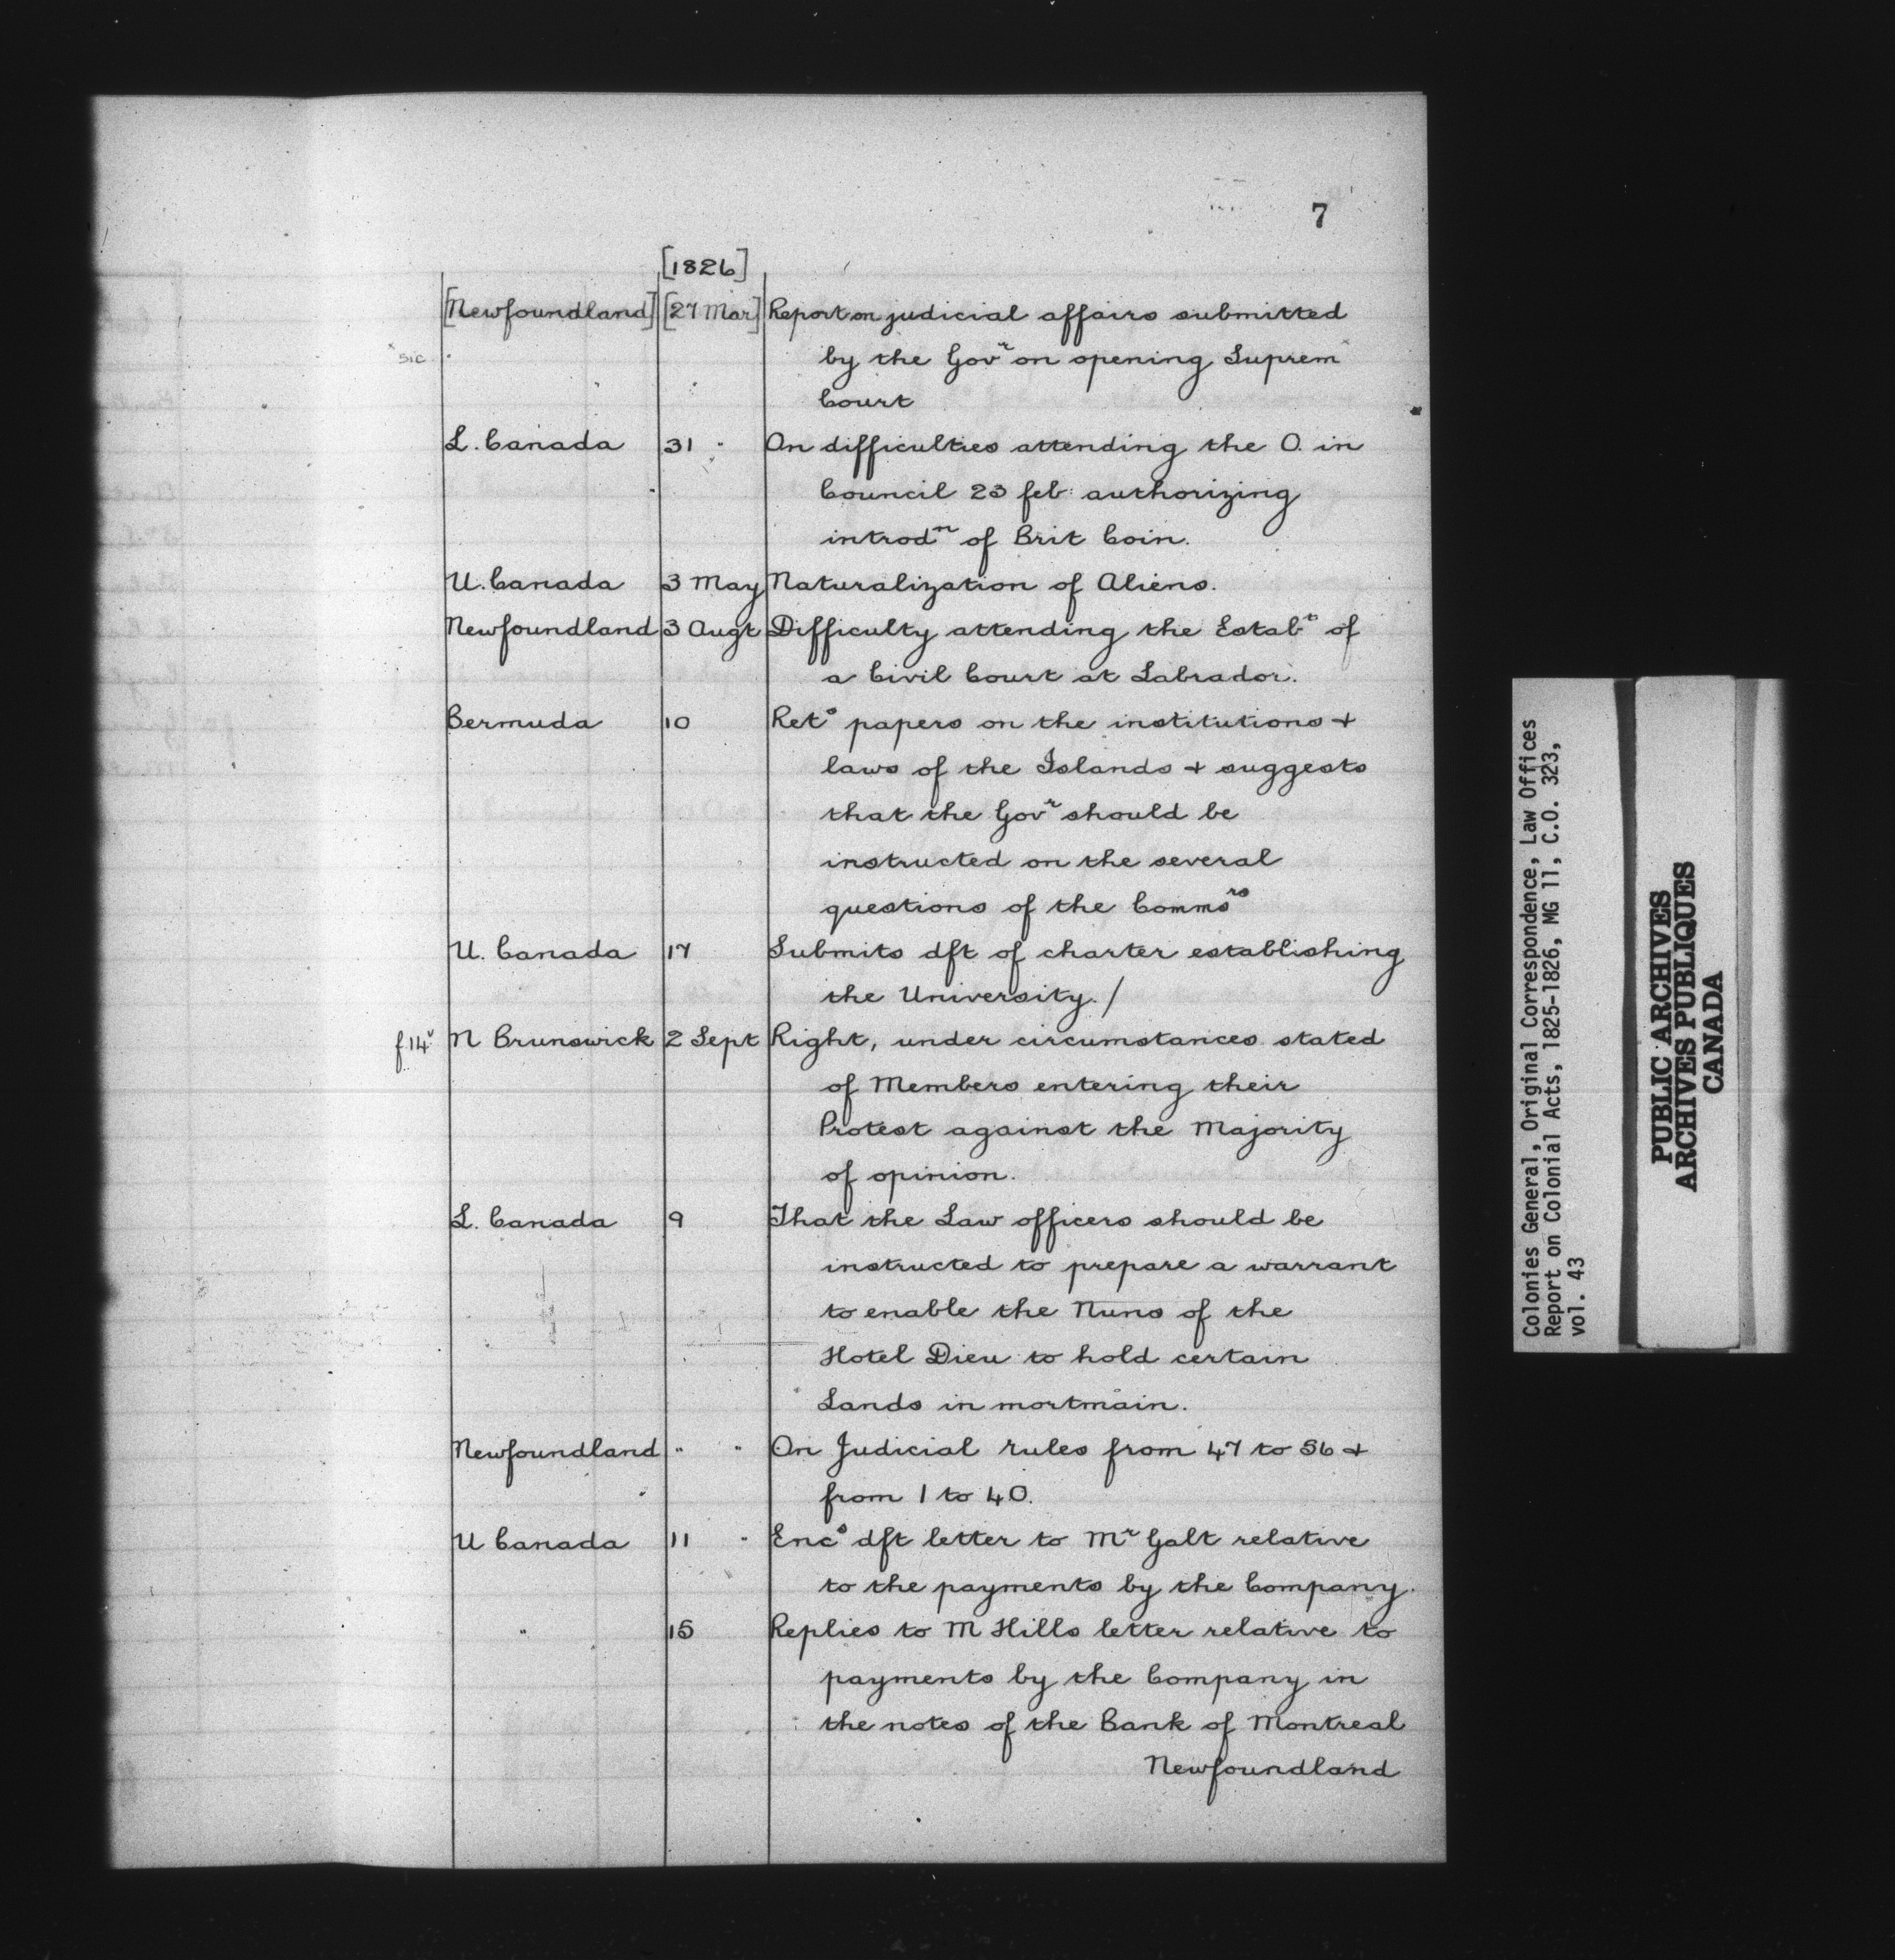 7
[1826]
[Newfoundland] [27 Mar] Report on judicial affairs submitted
x sic by the Govr on opening Suprem x
Court
L. Canada 31 " On difficulties attending the O. in
Council 23 feb: authorizing
introdn of Brit Coin.
U. Canada 3 May Naturalization of Aliens.
Newfoundland 3 Augt Difficulty attending the Estabt of
a Civil Court at Labrador.
Bermuda 10 Rets papers on the institutions &
laws of the Islands & suggests
that the Govr should be
instructed on the several
questions of the Commsrs
U. Canada 17 Submits dft of charter establishing
the University. /
f14v N Brunswick 2 Sept Right, under circumstances stated
of Members entering their
Protest against the Majority
of opinion.
L. Canada 9 That the Law officers should be
instructed to prepare a warrant
to enable the Nuns of the
Hotel Dieu to hold certain
Lands in mortmain.
Newfoundland " " On Judicial rules from 47 to 56 &
from 1 to 40.
U Canada 11 " Encs dft letter to Mr Galt relative
to the payments by the Company.
" 15 Replies to M Hills letter relative to
payments by the Company in
the notes of the Bank of Montreal
Newfoundland
Colonies General, Original Correspondence, Law Offices
Report on Colonial Acts, 1825-1826, MG 11, C.O. 323,
vol. 43
PUBLIC ARCHIVES
ARCHIVES PUBLIQUES
CANADA